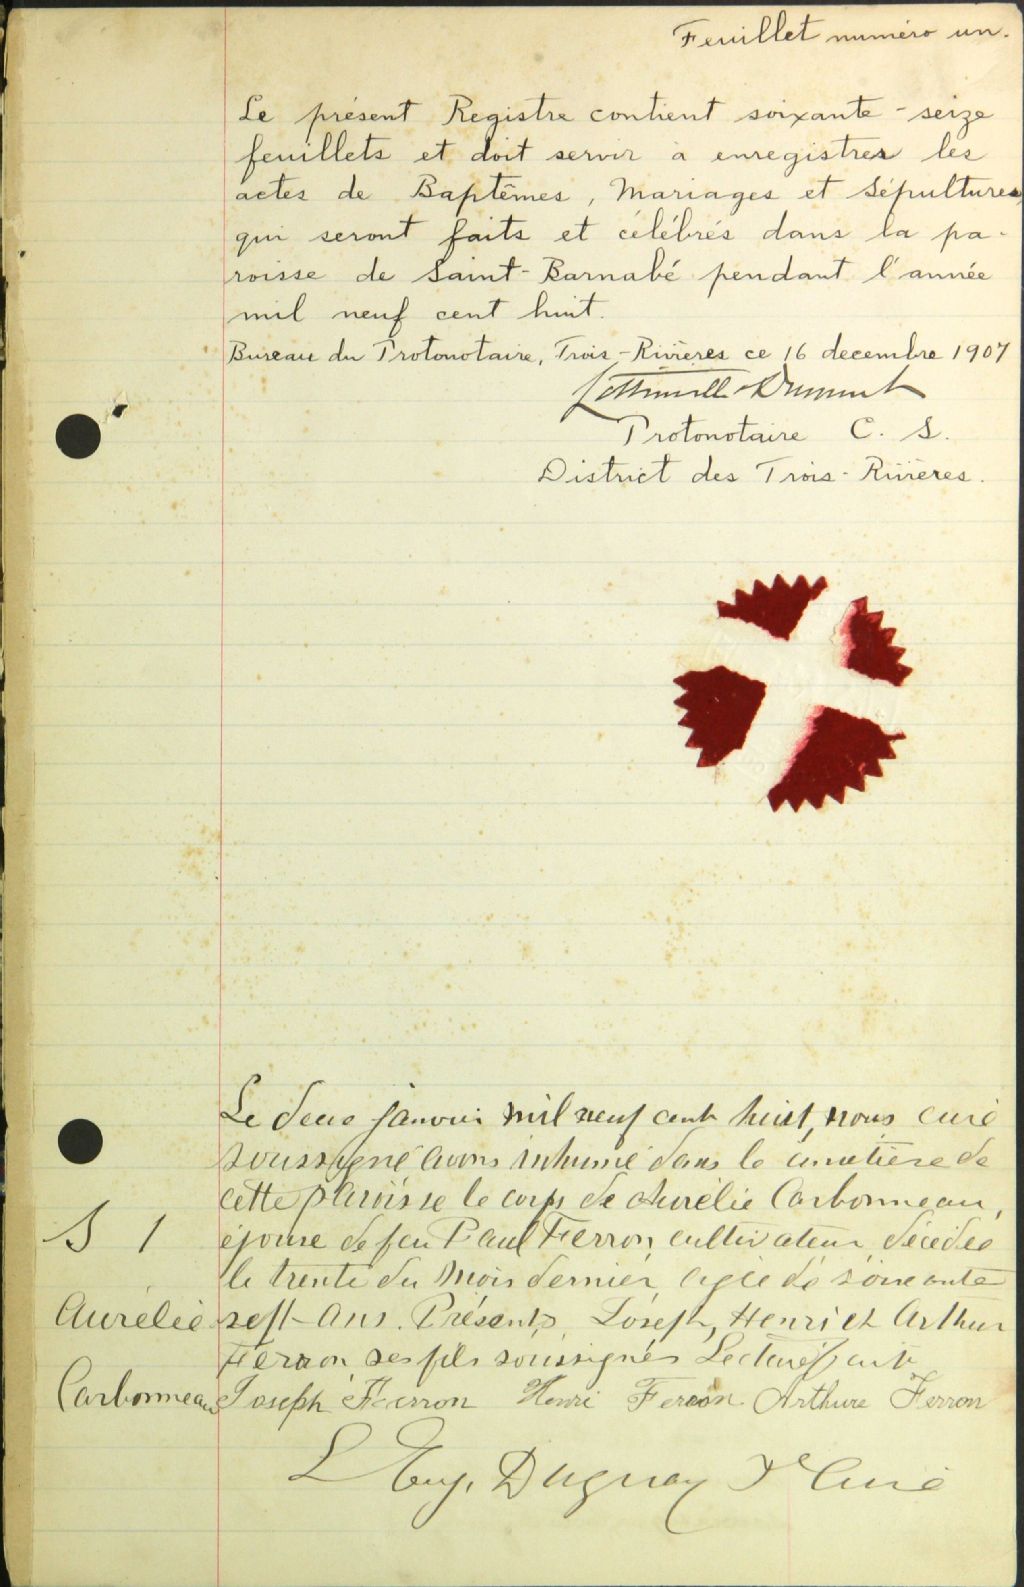 Feuillet numéro un.
Le présent Registre contient soixante-seize
feuillets et doit servir à enregistrer les
actes de Baptêmes, Mariages et Sépultures,
qui seront faits et célébrés dans la pa-
roisse de Saint-Barnabé pendant l'année
mil neuf cent huit.
Bureau du Protonotaire, Trois-Rivières ce 16 decembre 1907
Protonotaire C. S.
District des Trois-Rivières.
Le deux janvier mil neuf cent huit, nous curé
soussigné avons inhumé dans le cimetière de
cette paroisse le corps de Aurélie Carbonneau,
épouse de feu Paul Ferron, cultivateur, décédée
le trente du mois dernier, agée de soixante
S 1
Aurélie
sept ans. Présents, Joseph, Henri et Arthur
Ferron, ses fils soussignés Lecture faite
Carbonneau
Joseph Ferron Henri Ferron Arthure Ferron
L Eug. Duguay Ptre Curé